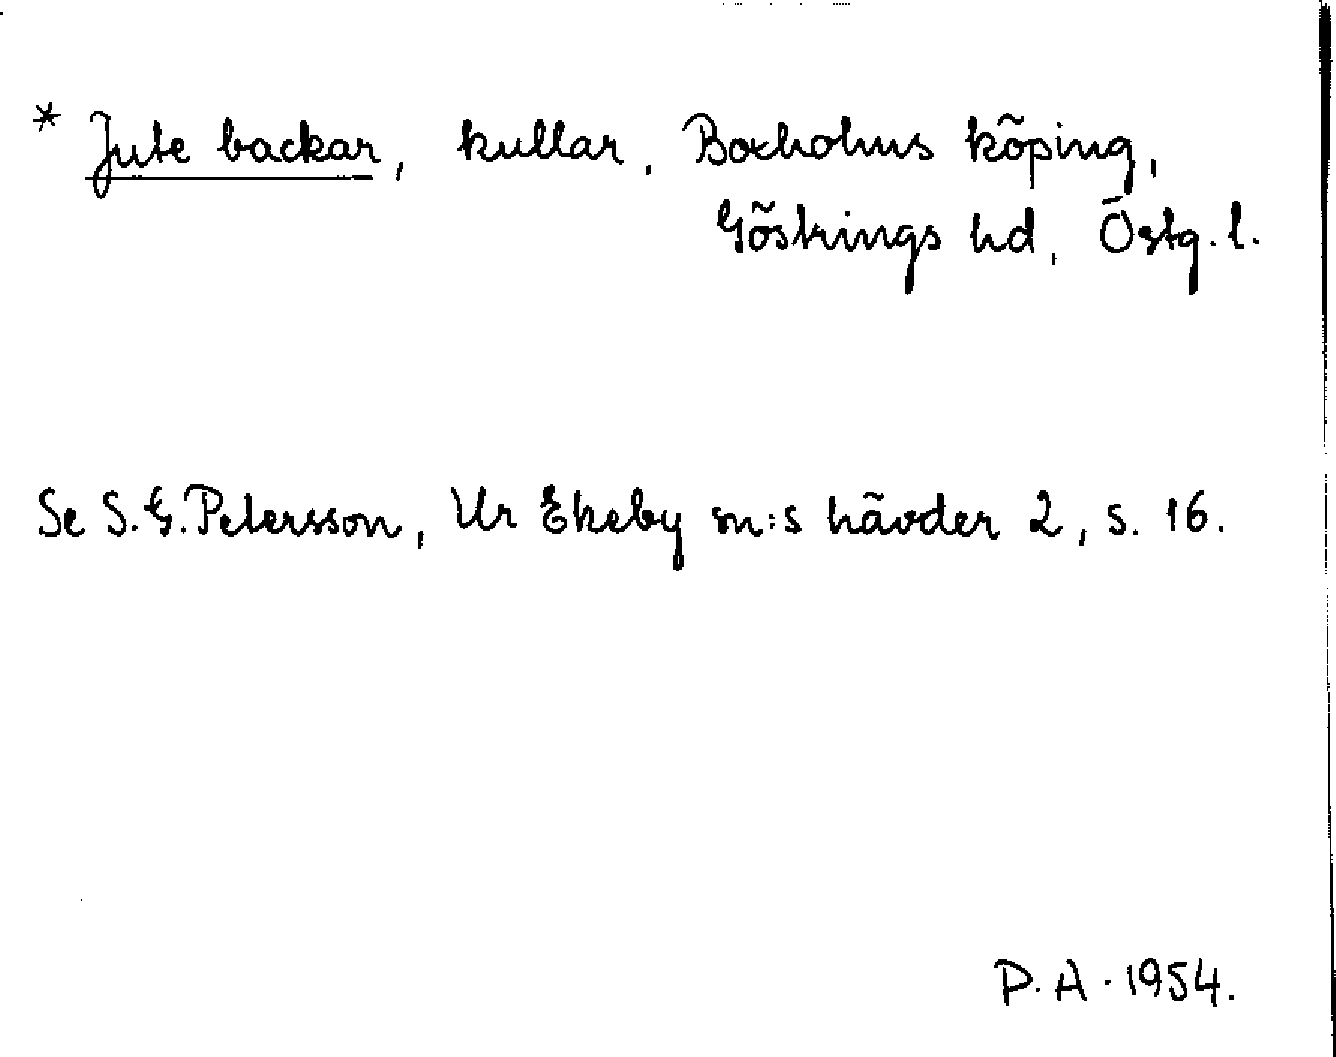 * Jute backar, kullar, Boxholms köping,
Göstrings hd, Östg. l.
Se S.G. Petersson, Ur Ekeby sn:s hävder 2, s. 16.
P.A. 1954.